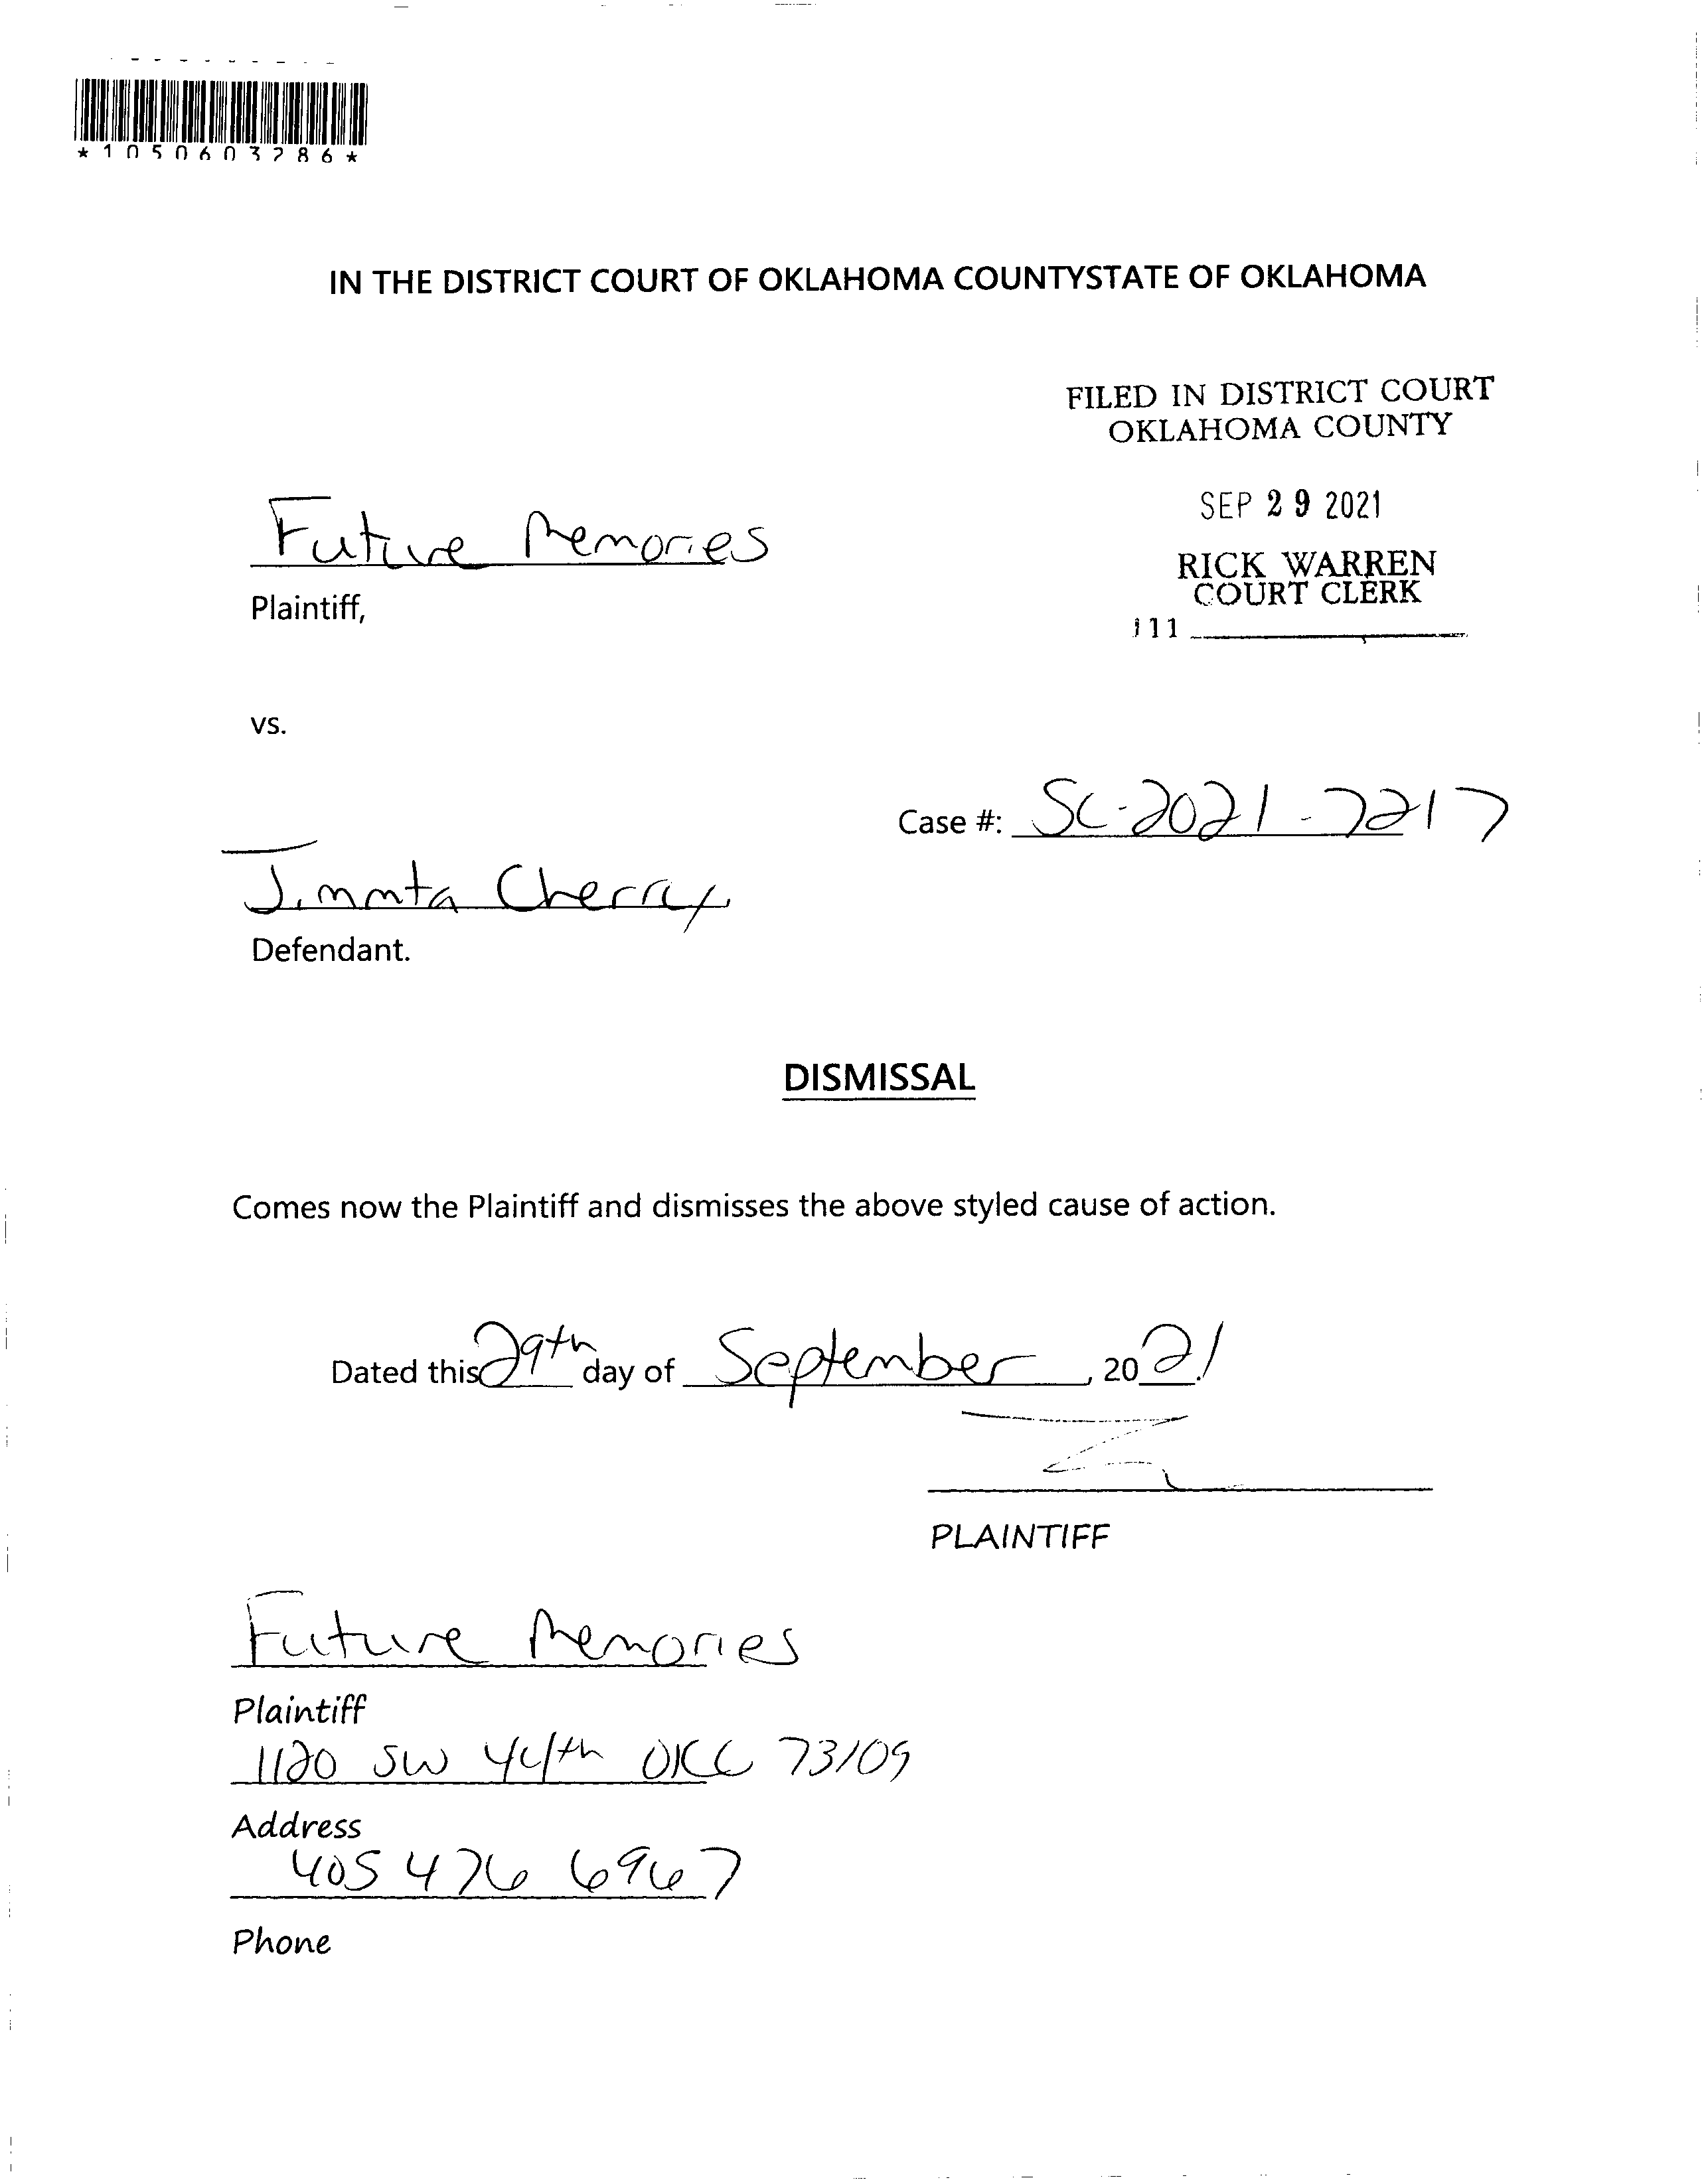 *1050603286*
IN THE DISTRICT COURT OF OKLAHOMA COUNTYSTATE OF OKLAHOMA
FILED IN DISTRICT COURT
OKLAHOMA COUNTY
SEP 29 2021
RICK WARREN
COURT CLERK
111
Future Memories
Plaintiff,
vs.
Case #: SC-2021-7217
Jimmta Cherry
Defendant.
DISMISSAL
Comes now the Plaintiff and dismisses the above styled cause of action.
Dated this 29th day of September, 2021
PLAINTIFF
Future Memories
Plaintiff
1120 SW 44th OKC 73109
Address
405 476 6967
Phone